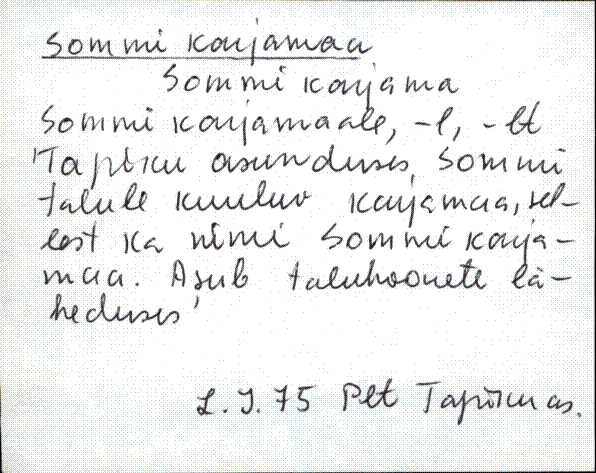 Sommi karjamaa
Sommi karjama
Sommi karjamaale, -l, -lt
'Tapiku asunduses, Sommi
talule kuuluv karjamaa, sel-
lest ka nimi Sommi karja-
maa. Asub taluhoonete lä-
heduses'
L. J. 75 Plt Tapiku as.